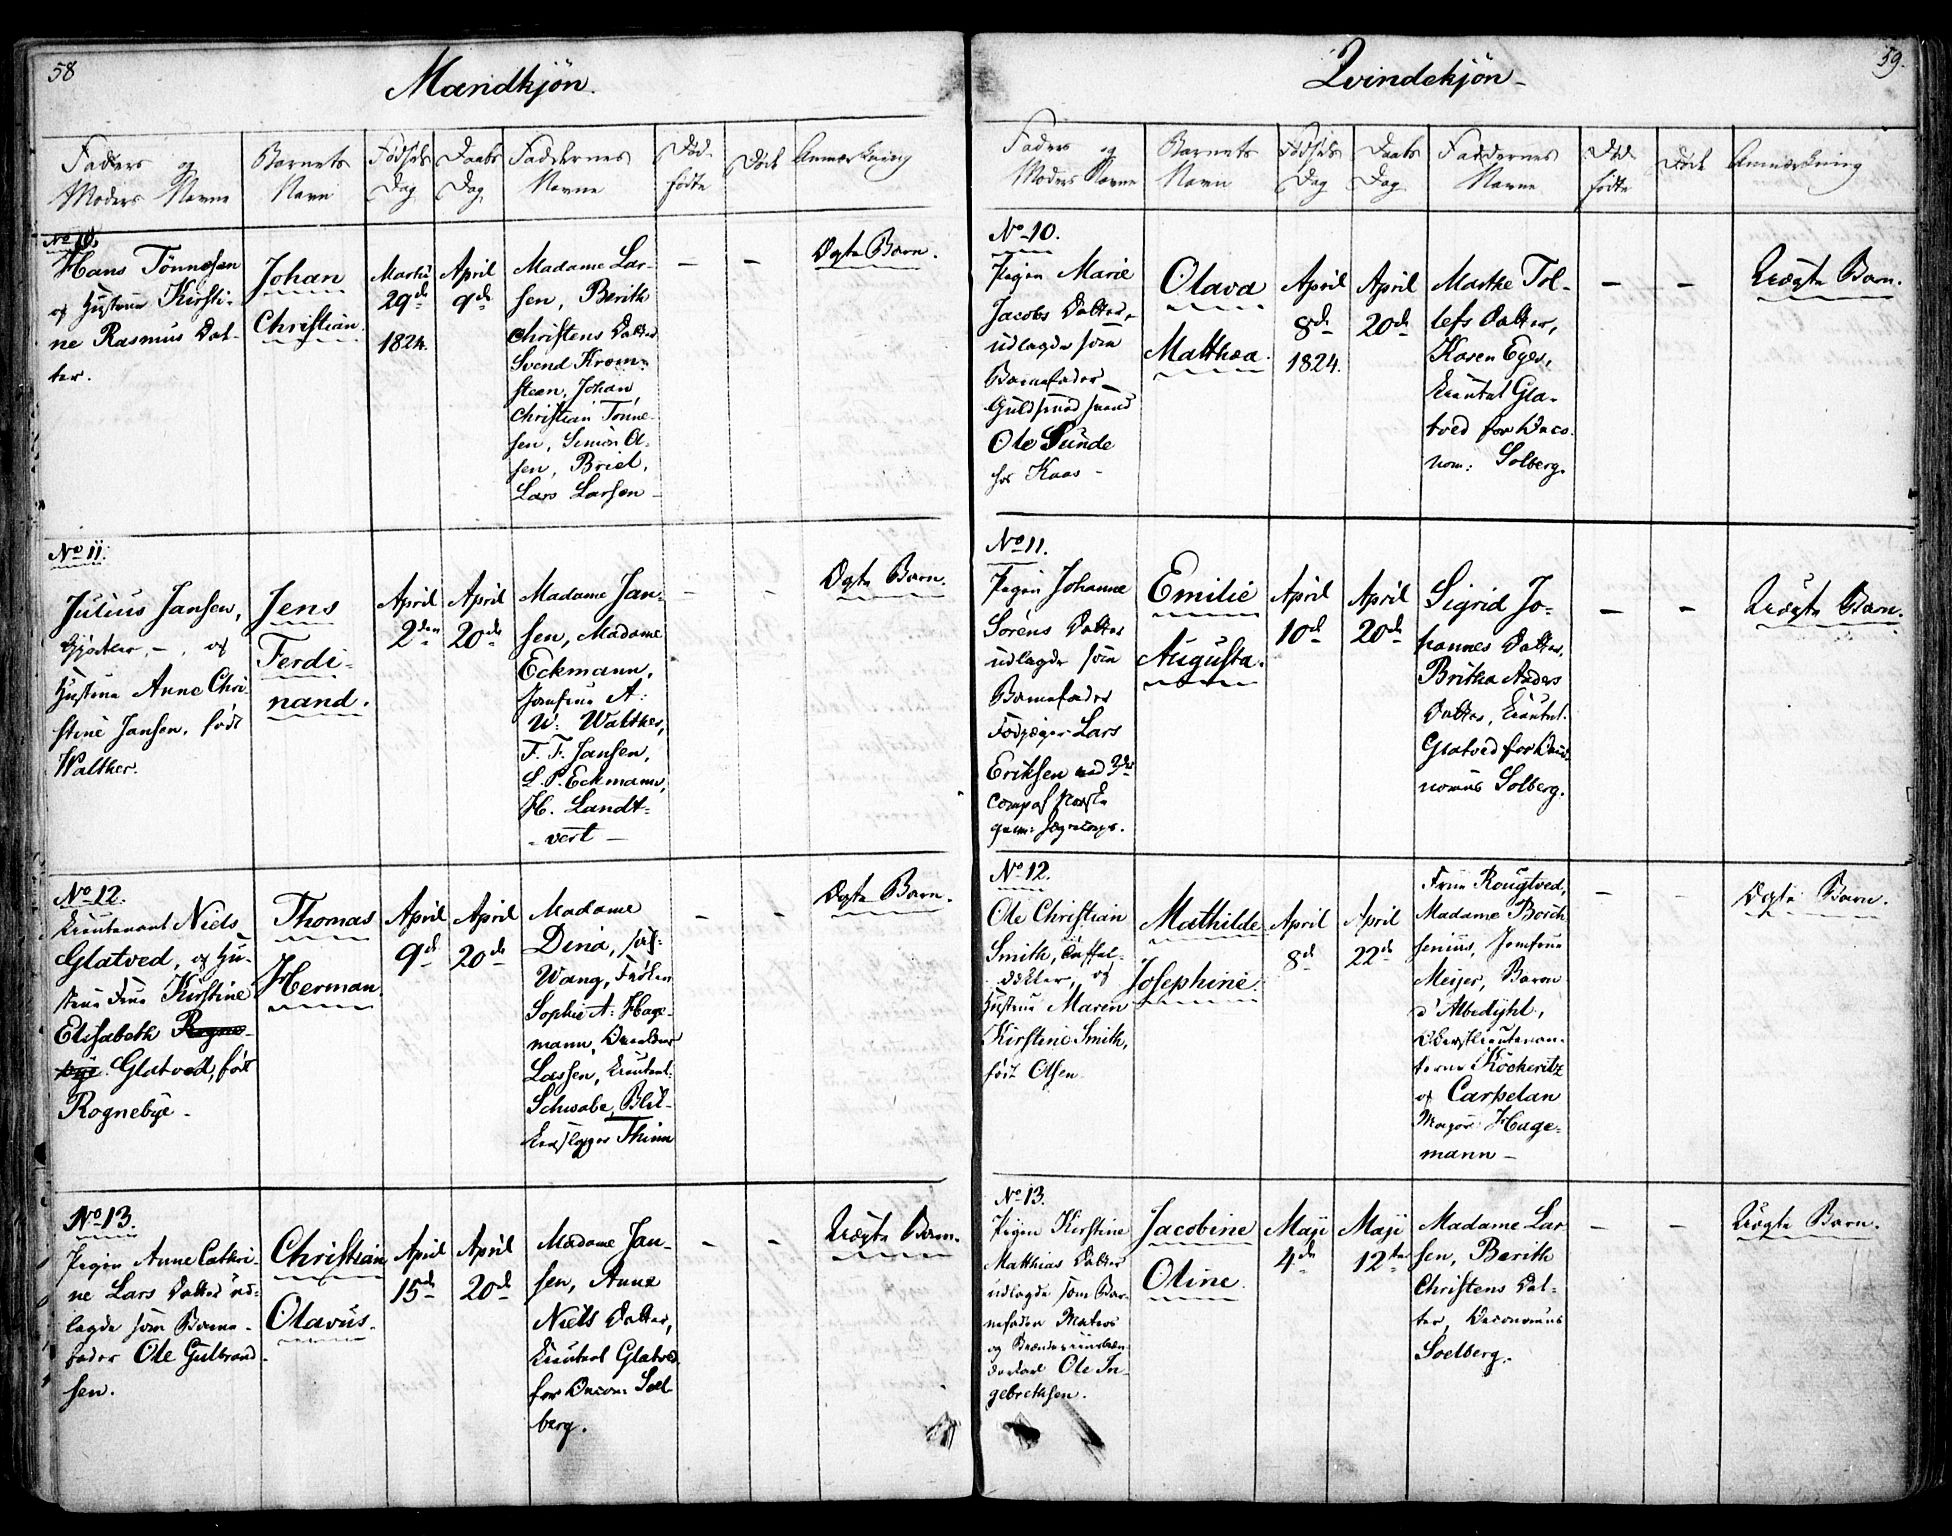 58
Mandkjön.
Faders og
Moders Navne
Barnets
Navn
Födsels
Dag
Daabs
Dag
Faddernes
Navne
Död
födte
Döde
Anmærkning
No 10.
Hans Tönnesen
og Hustrue Kirsti-
ne Rasmus Dat-
ter.
Johan
Christian.
Martii
29de
1824.
April
9de
Madame Lar-
sen, Berith
Christens Datter
Svend Krom-
steen, Johan
Christian Tönne-
sen, Simon Ol-
sen, Briel,
Lars Larsen -
-
-
Ægte Barn.
No 11.
Julius Jansen,
Gjörtler, -, og
Hustrue Anne Chri-
stine Jansen, født
Walther.
Jens
Ferdi-
nand.
April
2den
April
20de
Madame Jan-
sen, Madame
Eckmann,
Jomfrue A:
W: Walther,
F. F. Jansen,
L. P. Eckmann,
H. Landt-
-vert -
-
-
Ægte Barn.
No 12.
Lieutenant Niels
Glatved, og Hu-
strue Frue Kirstine
Elisabeth Rogne-
bye Glatved, født
Rognebye -
Thomas
Herman.
April
9de
April
20de
Madame
Dina,
Wang, Fröken
Sophie A: Hage-
mann,
Lassen, Lieutent:
Schwabe, Blik-
kenslager Thinn
-
-
Ægte Barn.
No 13.
Pigen Anne Cathri-
ne Lars Datter ud-
lagde som Barne-
fader Ole Gulbrand-
sen.
Christian
Olavus.
April
15de
April
20de
Madame Jan-
sen, Anne
Niels Datter,
Lieutent Glatved
for Oecon: Sol-
berg.
-
-
Uægte Barn.
59.
Qvindekjön -
Faders og
Moders Navne
Barnets
Navn
Födsels
Dag
Daabs
Dag
Faddernes
Navne
Död
födte
Döde
Anmærkning
No 10.
Pigen Marie
Jacobs Datter,
udlagde som
Barnefader
Guldsmed svend
Ole Sunde
hos Kaas -
Olava
Matthea.
April
8de
1824.
April
20de
Marthe Tol-
lefs Datter,
Karen Eger,
Lieutnt Gla-
tved for Oeco-
nom: Solberg.
-
-
Uægte Barn.
No 11.
Pigen Johanne
Sörens Datter
udlagde som
Barnefader
Fodjæger Lars
Eriksen ved 3die
Comp af Norske
Jægercorps.
Emilie
Augusta.
April
10de
April
20de
Sigrid Jo-
hannes Datter,
Britha Anders
Datter, Lieutnt.
Glatved for Oeco-
nomus Solberg.
-
-
Uægte Barn.
No 12.
Ole Christian
Smith,
og
Hustrue Maren
Kirstine Smith,
født Olsen
Mathilde
Josephine.
April
8de
April
22de
Frue Rougtved,
Madame Borch-
senius, Jomfrue
Meijer, Baron
d'Albedyhl,
Oberstlieutenan-
terne Köckeritz
og Carpelan
Major Hage-
mann -
-
-
Ægte Barn.
No 13.
Pigen Kirstine
Matthias Datter
udlagde som Bar-
nefader Matros
og
Ole In-
gebrethsen.
Jacobine
Oline.
Maji
4de
Maji
12te
Madame Lar-
sen, Berith
Christens Dat-
ter, Oeconomus
Soelberg.
-
-
Uægte Barn.